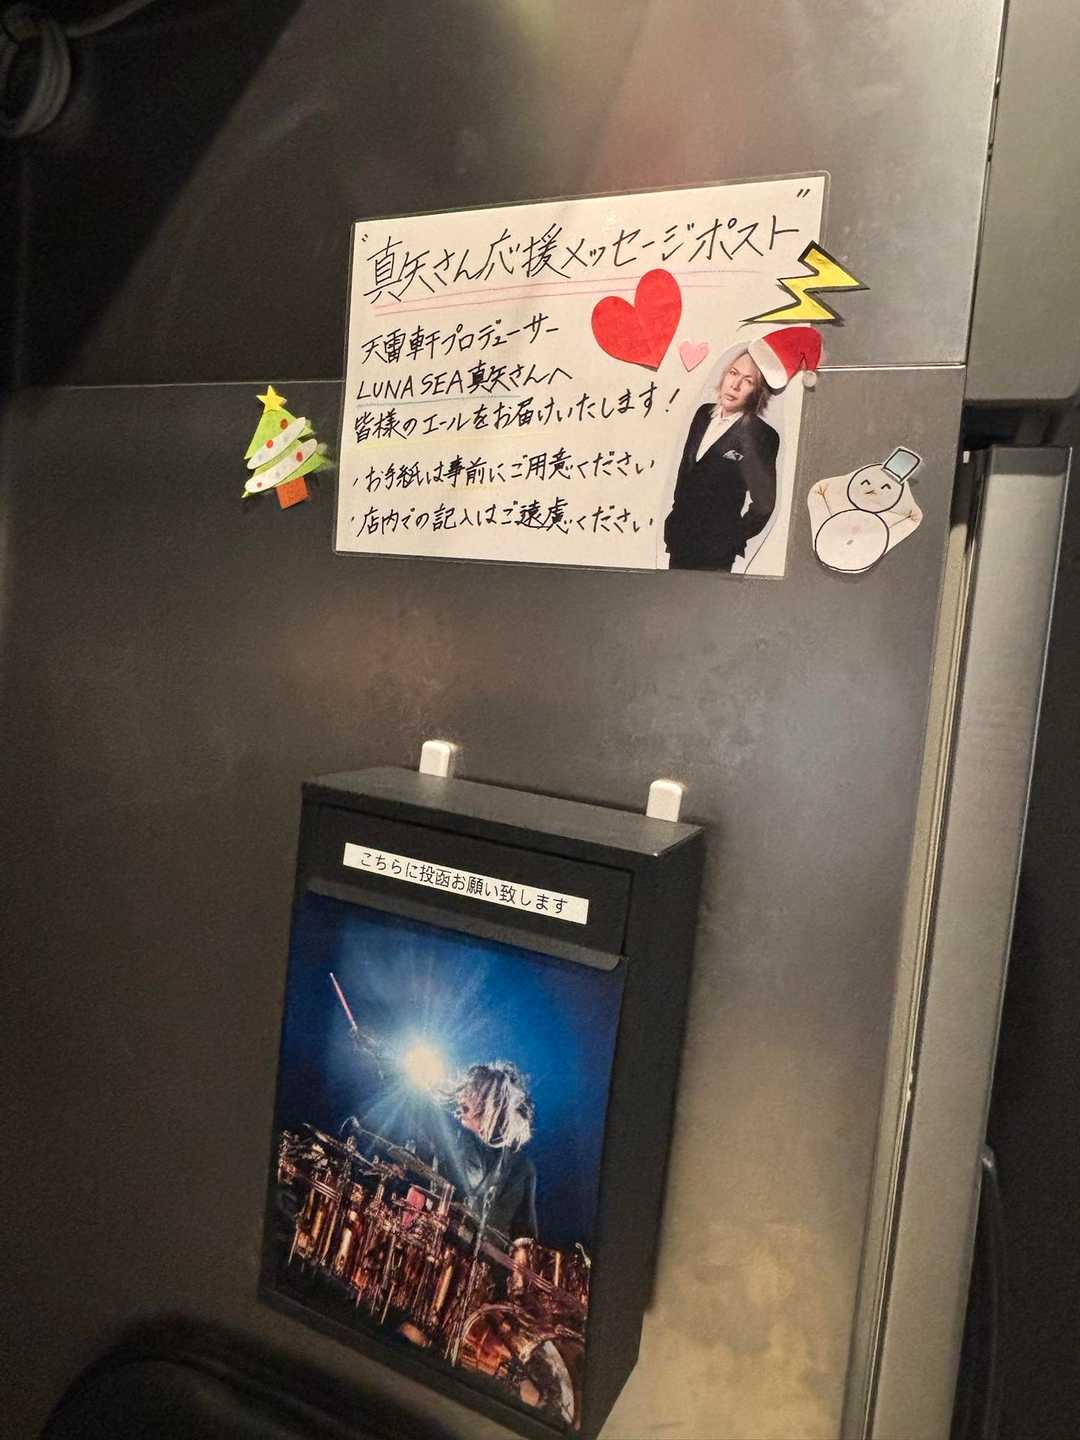 "真矢さん応援メッセージポスト"
天雷軒プロデューサー
LUNA SEA真矢さんへ
皆様のエールをお届けいたします!
・お手紙は事前にご用意ください
・店内での記入はご遠慮ください
こちらに投函お願い致します